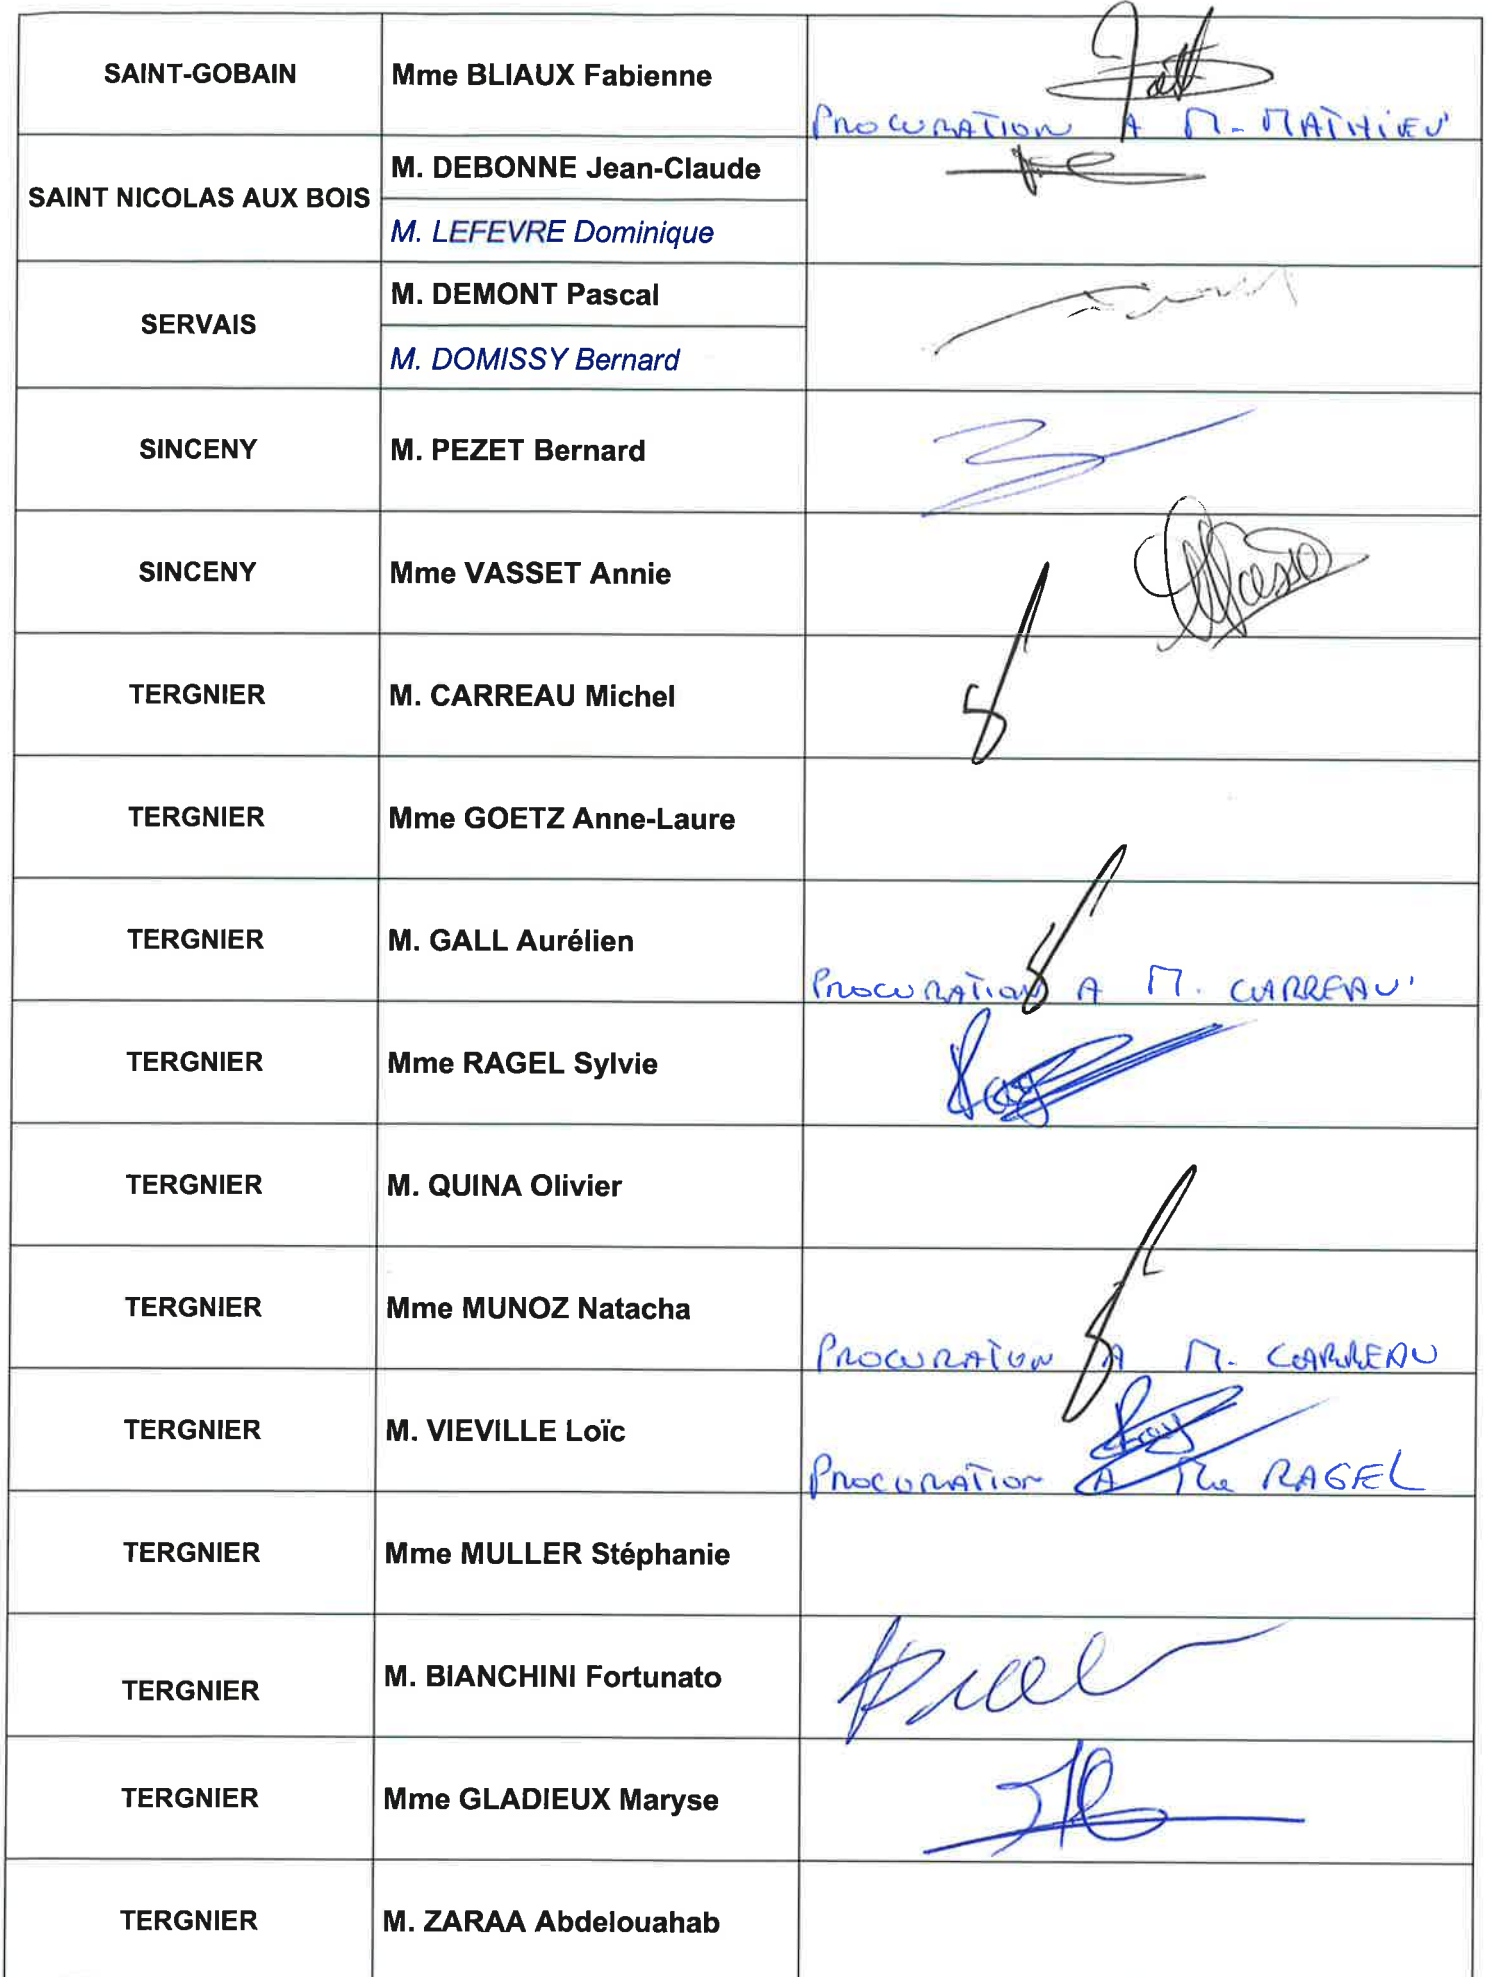 SAINT-GOBAIN
Mme BLIAUX Fabienne
PROCURATION A M. MATHIEU
SAINT NICOLAS AUX BOIS
M. DEBONNE Jean-Claude
M. LEFEVRE Dominique
SERVAIS
M. DEMONT Pascal
M. DOMISSY Bernard
SINCENY
M. PEZET Bernard
SINCENY
Mme VASSET Annie
TERGNIER
M. CARREAU Michel
TERGNIER
Mme GOETZ Anne-Laure
TERGNIER
M. GALL Aurélien
PROCURATION A M. CARREAU
TERGNIER
Mme RAGEL Sylvie
TERGNIER
M. QUINA Olivier
TERGNIER
Mme MUNOZ Natacha
PROCURATION A M. CARREAU
TERGNIER
M. VIEVILLE Loïc
PROCURATION A Mme RAGEL
TERGNIER
Mme MULLER Stéphanie
TERGNIER
M. BIANCHINI Fortunato
TERGNIER
Mme GLADIEUX Maryse
TERGNIER
M. ZARAA Abdelouahab